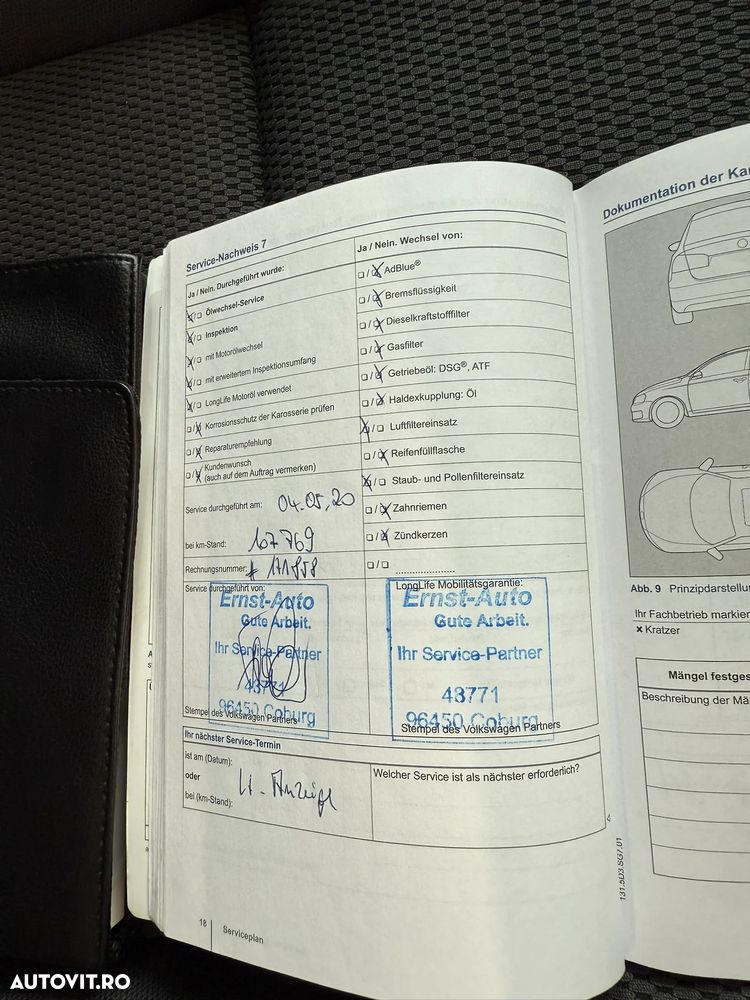 Service-Nachweis 7
Ja / Nein. Durchgeführt wurde:
Ölwechsel-Service
Inspektion
mit Motorölwechsel
mit erweitertem Inspektionsumfang
LongLife Motoröl verwendet
Korrosionsschutz der Karosserie prüfen
Reparaturempfehlung
Kundenwunsch
(auch auf dem Auftrag vermerken)
Service durchgeführt am: 04.05.20
bei km-Stand: 107769
Rechnungsnummer:
Service durchgeführt von:
Ernst-Auto
Gute Arbeit.
Ihr Service-Partner
48771
96450 Coburg
Stempel des Volkswagen Partners
Ja / Nein. Wechsel von:
AdBlue®
Bremsflüssigkeit
Dieselkraftstofffilter
Gasfilter
Getriebeöl: DSG®, ATF
Haldexkupplung: Öl
Luftfiltereinsatz
Reifenfüllflasche
Staub- und Pollenfiltereinsatz
Zahnriemen
Zündkerzen
LongLife Mobilitätsgarantie:
Ernst-Auto
Gute Arbeit.
Ihr Service-Partner
48771
96450 Coburg
Stempel des Volkswagen Partners
Ihr nächster Service-Termin
ist am (Datum):
oder
bei (km-Stand):
Lt. Anzeige
Welcher Service ist als nächster erforderlich?
18
Serviceplan
131.5D3.SG7.01
Dokumentation der
Abb. 9 Prinzipdarstellu
Ihr Fachbetrieb markier
× Kratzer
Mängel festges
Beschreibung der Mä
AUTOVIT.RO